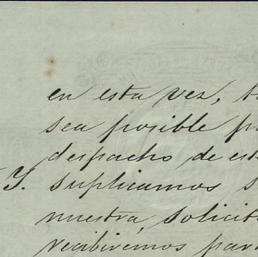 en esta vez,
sea posible
despacho de
Y. suplicamos
nuestra,
recibiremos